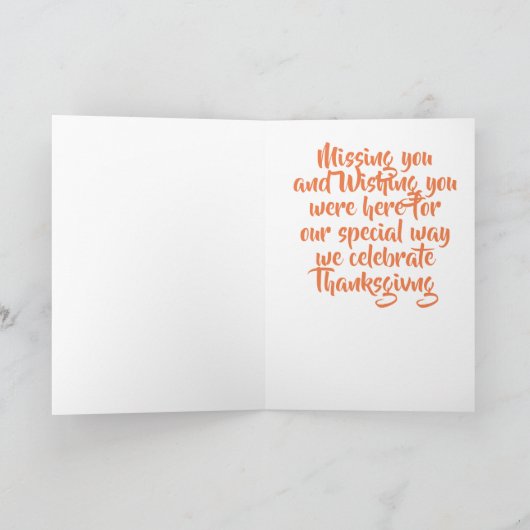 Missing you
and Wishing you
were here for
our special way
we celebrate
Thanksgivng